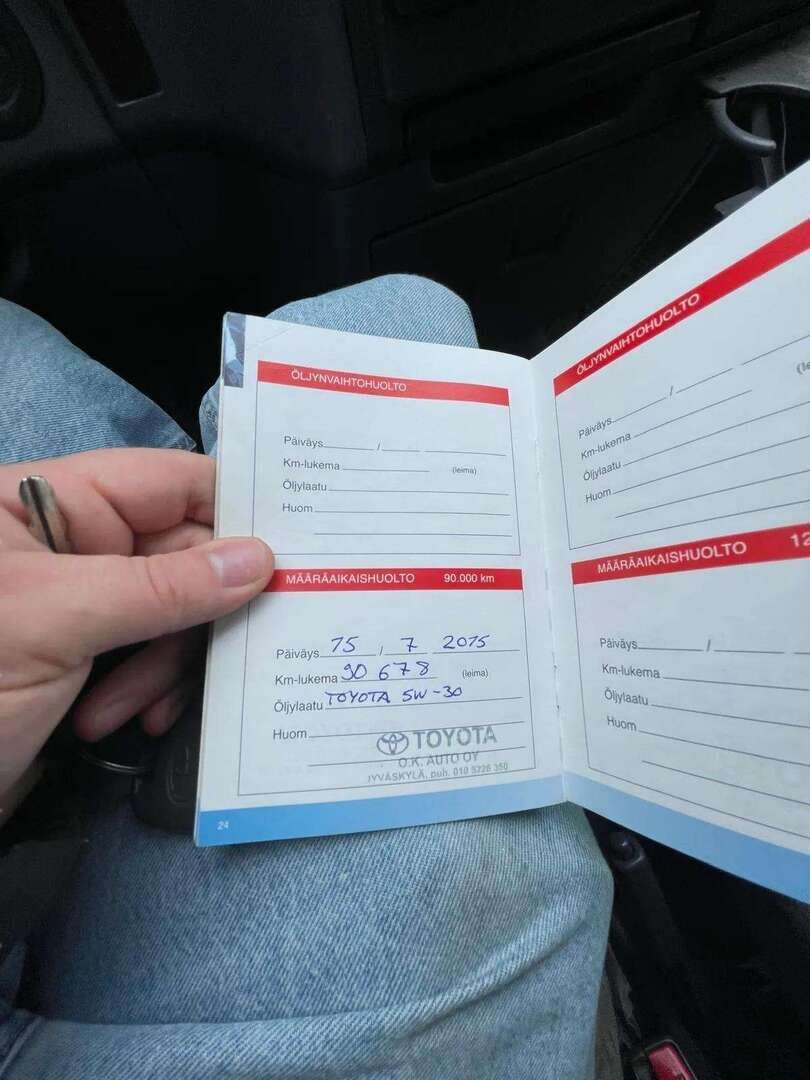 ÖLJYNVAIHTOHUOLTO
Päiväys / 
Km-lukema (leima)
Öljylaatu
Huom
MÄÄRÄAIKAISHUOLTO 90.000 km
Päiväys 15 / 7 2015
Km-lukema 90 678 (leima)
Öljylaatu TOYOTA 5W-30
Huom
TOYOTA
O.K. AUTO OY
JYVÄSKYLÄ, puh. 010 5226 350
24
ÖLJYNVAIHTOHUOLTO
Päiväys /
Km-lukema
Öljylaatu
Huom
MÄÄRÄAIKAISHUOLTO 12
Päiväys /
Km-lukema
Öljylaatu
Huom